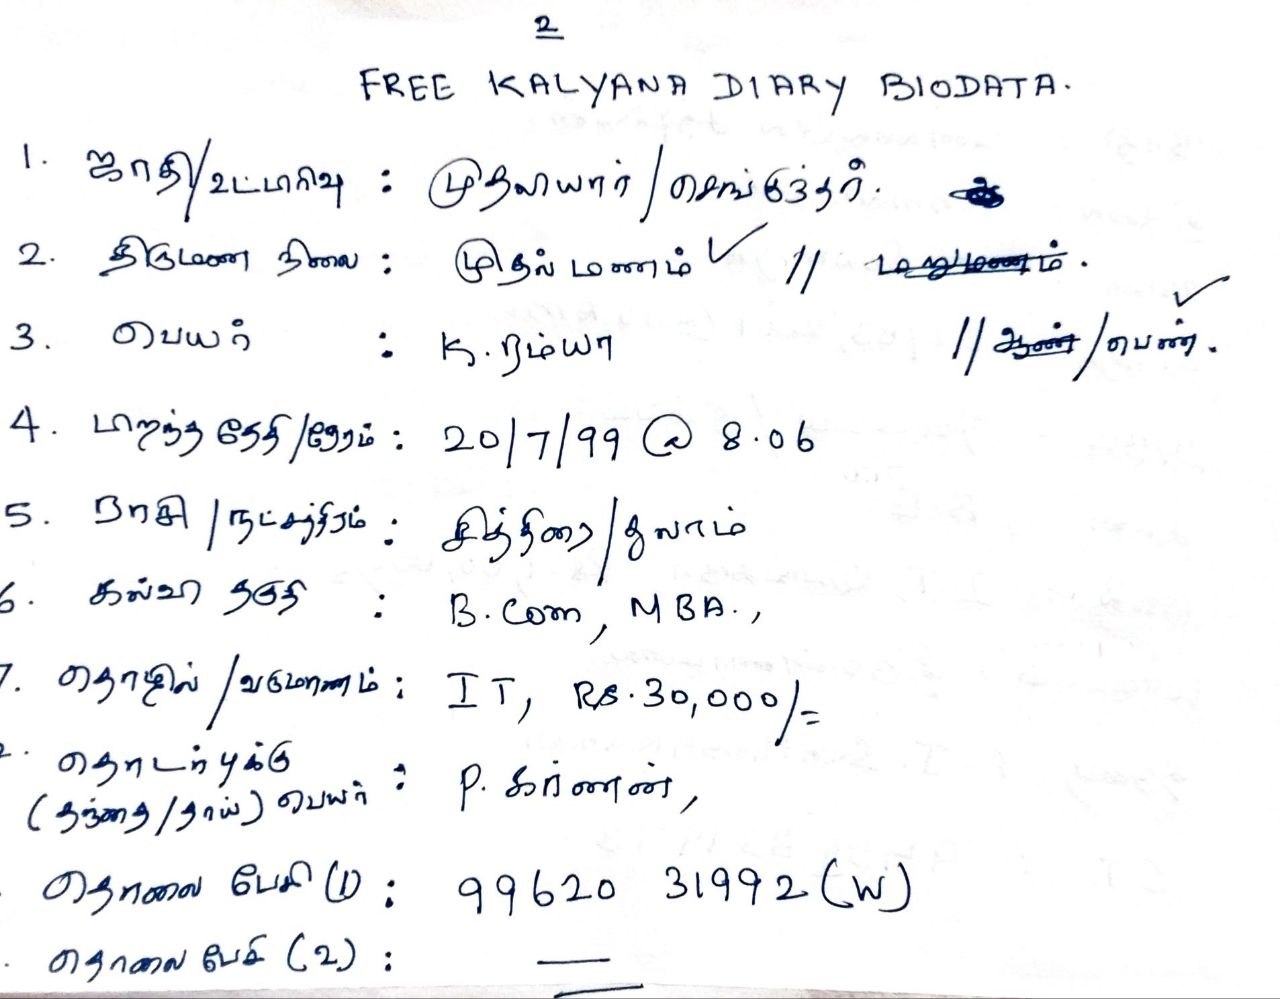 2
FREE KALYANA DIARY BIODATA.
1. ஜாதி/உட்பிரிவு : முதலியார்/செங்குந்தர்.
2. திருமண நிலை : முதல் மணம் ✓ // மறுமணம்.
3. பெயர் : K. ரம்யா // ஆண்/பெண். ✓
4. பிறந்த தேதி/நேரம் : 20/7/99 @ 8.06
5. ராசி/நட்சத்திரம் : சித்திரை/துலாம்
6. கல்வி தகுதி : B. Com, MBA.,
7. தொழில்/வருமானம் : IT, RS. 30,000/=
தொடர்புக்கு
(தந்தை/தாய்) பெயர் : P. கர்ணன்,
தொலை பேசி (1) : 99620 31992 (W)
தொலை பேசி (2) : —